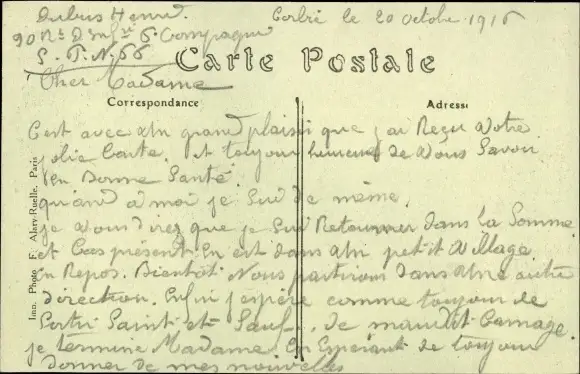 Dubus Henri
Corbie le 20 Octobre 1916
90 R.t D'Inf.rie 6e Compagnie
S. P. N. 66
Carte Postale
Cher Madame
Correspondance
Adresse
C'est avec un grand plaisir que j'ai Reçu Votre
jolie Carte. et toujour heureux de Vous Savoir
en Bonne Santé.
quand a moi je Sui de même.
je vous direz que je Sui Retourner dans la Somme
et Cas présent en est dans un petit Village
en Repos. Bientôt Nous partirons dans une autre
direction. Enfin j'espère comme toujour de
Sortir Saint et Sauf. de maudit Carnage.
je termine Madame En Esperant de toujour
donner de mes nouvelles
Imp. Photo F. Alary-Ruelle, Paris